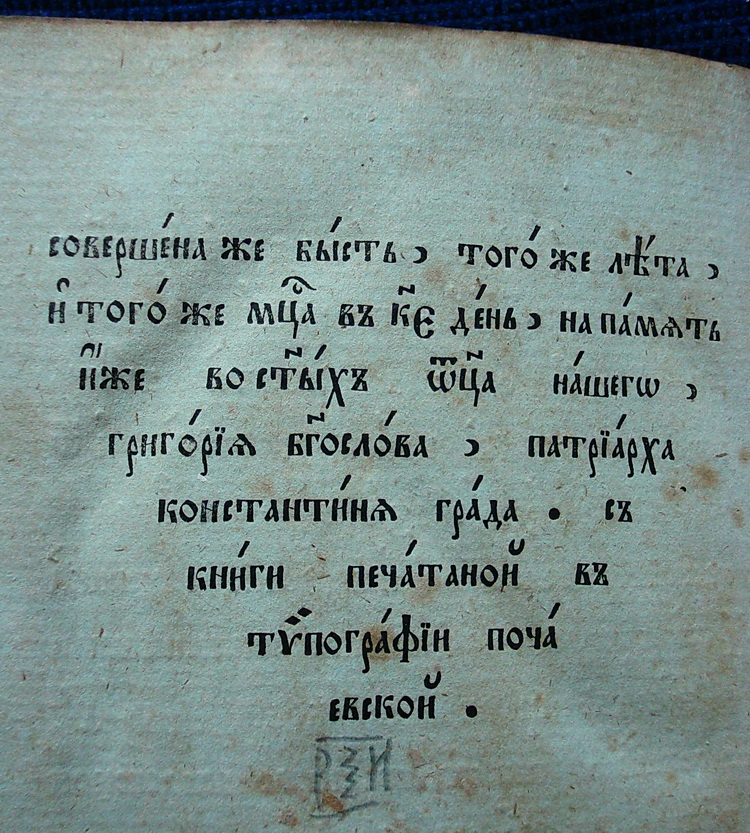 совершéна же бы́сть, того́ же лѣ́та,
и҆ того́ же мц҇а въ к҃є де́нь, на па́мѧть
и҆́же во ст҃ы́хъ ѿц҃а на́шегѡ,
григо́рїѧ бг҃осло́ва, патрїа́рха
константи́нѧ гра́да. съ
кни́ги печа́таной въ
тѷпогра́фїи поча́
евской.